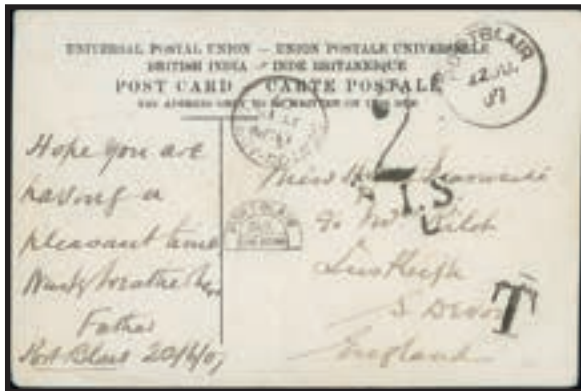 UNIVERSAL POSTAL UNION — UNION POSTALE UNIVERSELLE
BRITISH INDIA — INDE BRITANNIQUE
POST CARD CARTE POSTALE
THE ADDRESS ONLY TO BE WRITTEN ON THIS SIDE
PORTBLAIR
07
Hope you are
having a
pleasant time
Father
Port Blair 20/6/07
2
T.S.
PORTBLAIR
Miss
c/o Mrs
Lustleigh
S. Devon
England
T